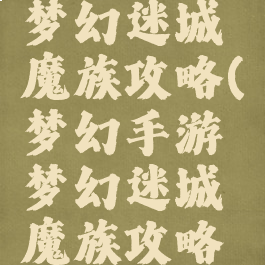 梦幻迷城
魔族攻略(
梦幻手游
梦幻迷城
魔族攻略